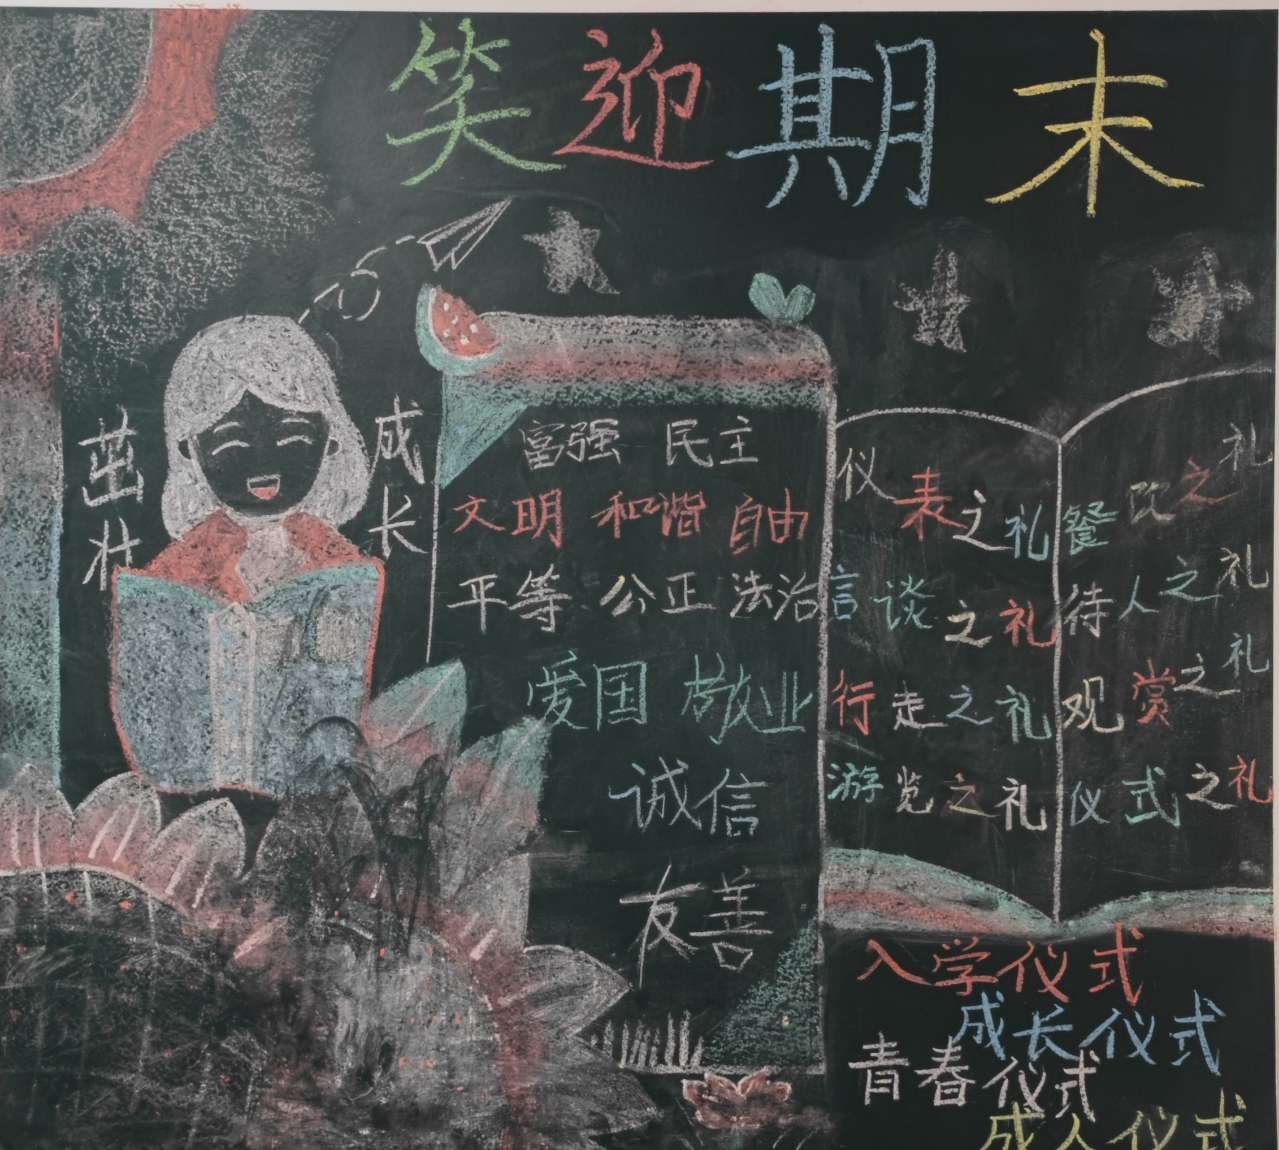 笑迎期末
茁壮
成长
富强 民主
文明 和谐 自由
平等 公正 法治
爱国 敬业
诚信
友善
仪表之礼
言谈之礼
行走之礼
游览之礼
餐饮之礼
待人之礼
观赏之礼
仪式之礼
入学仪式
成长仪式
青春仪式
成人仪式